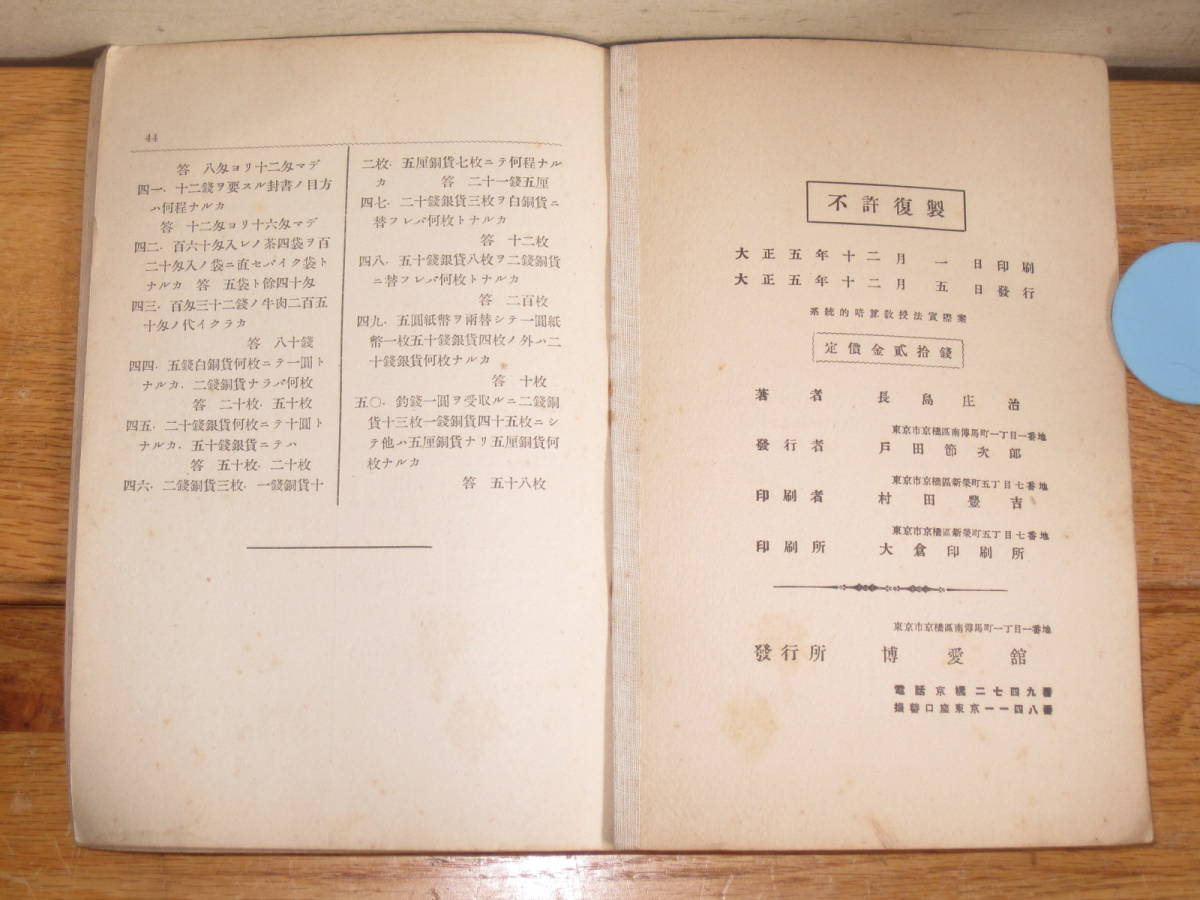 44
答 八匁ヨリ十二匁マデ
四一. 十二錢ヲ要スル封書ノ目方
ハ何程ナルカ
答 十二匁ヨリ十六匁マデ
四二. 百六十匁入レノ茶四袋ヲ百
二十匁入ノ袋ニ直セバイク袋ト
ナルカ 答 五袋ト餘四十匁
四三. 百匁三十二錢ノ牛肉二百五
十匁ノ代イクラカ
答 八十錢
四四. 五錢白銅貨何枚ニテ一圓ト
ナルカ. 二錢銅貨ナラバ何枚
答 二十枚. 五十枚
四五. 二十錢銀貨何枚ニテ十圓ト
ナルカ. 五十錢銀貨ニテハ
答 五十枚. 二十枚
四六. 二錢銅貨三枚. 一錢銅貨十
二枚. 五厘銅貨七枚ニテ何程ナル
カ 答 二十一錢五厘
四七. 二十錢銀貨三枚ヲ白銅貨ニ
替フレバ何枚トナルカ
答 十二枚
四八. 五十錢銀貨八枚ヲ二錢銅貨
ニ替フレバ何枚トナルカ
答 二百枚
四九. 五圓紙幣ヲ兩替シテ一圓紙
幣一枚五十錢銀貨四枚ノ外ハ二
十錢銀貨何枚ナルカ
答 十枚
五〇. 釣錢一圓ヲ受取ルニ二錢銅
貨十三枚一錢銅貨四十五枚ニシ
テ他ハ五厘銅貨ナリ五厘銅貨何
枚ナルカ
答 五十八枚
不許復製
大正五年十二月一日印刷
大正五年十二月五日發行
系統的暗算教授法實際案
定價金貳拾錢
著者 長島庄治
東京市京橋區南傳馬町一丁目一番地
發行者 戸田節次郎
東京市京橋區新榮町五丁目七番地
印刷者 村田豐吉
東京市京橋區新榮町五丁目七番地
印刷所 大倉印刷所
東京市京橋區南傳馬町一丁目一番地
發行所 博愛館
電話京橋二七四九番
振替口座東京一一四八番